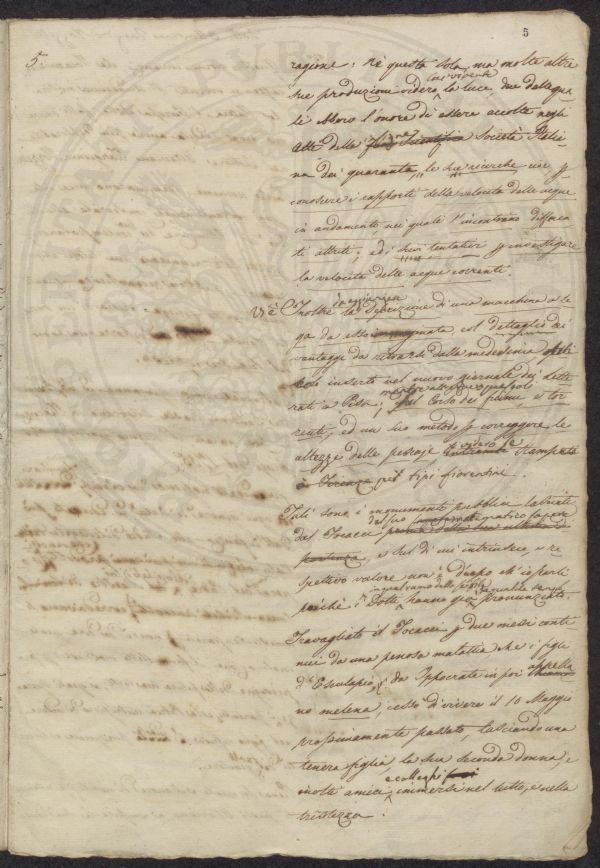 5
5
ragione: Né questa sola, ma molte altre
sue produzioni videro lui vivente la luce due delle qua
li ebbero l'onore di essere accolte negli
Atti della Società Italia
na dei quaranta, le sue ricerche cioè p
conoscere i rapporti della velocità delle acque
in andamento nei quali s'incontrano differen
ti attriti, ed i suoi tentativi p investigare
la velocità delle acque correnti.
Inoltre la descrizione di una macchina a se
ga da esso ed il dettaglio dei
vantaggi da ritrarsi dalla medesima
inserte nel nuovo giornale dei lette
rati di Pisa; del Corso dei fiumi, e tor
renti, ed un suo metodo p correggere le
altezze delle pescaje stampate
pei tipi fiorentini.
Tali sono i monumenti pubblici lasciati
dal Focacci del suo pratico sapere
e sul di cui intrinseco, e re
spettivo valore non è d'uopo ch'io parli
poichè i Dotti hanno già pronunziato
Travagliato il Focacci p due mesi conti
nui da una penosa malattia che i figli
d'Esculapio, da Ippocrate in poi appella
no melena, cessò di vivere il 10 Maggio
prossimamente passato, lasciando una
tenera figlia la sua seconda donna, e
molti amici e colleghi immersi nel lutto, e nella
tristezza.